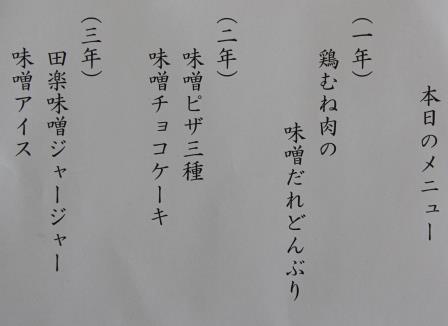 本日のメニュー
（一年）
鶏むね肉の
味噌だれどんぶり
（二年）
味噌ピザ三種
味噌チョコケーキ
（三年）
田楽味噌ジャージャー
味噌アイス